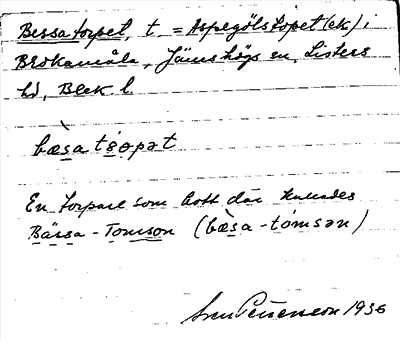 Bessatorpet, t = Aspegölstorpet (ek) i
Brokamåla, Jämshögs sn, Listers
hd, Blek l
bæ̀sa tɷ́rpət
En torpare som bott där kallades
Bässa-Tomson (bæ̀sa-tómsən)
Sven Petersson 1936